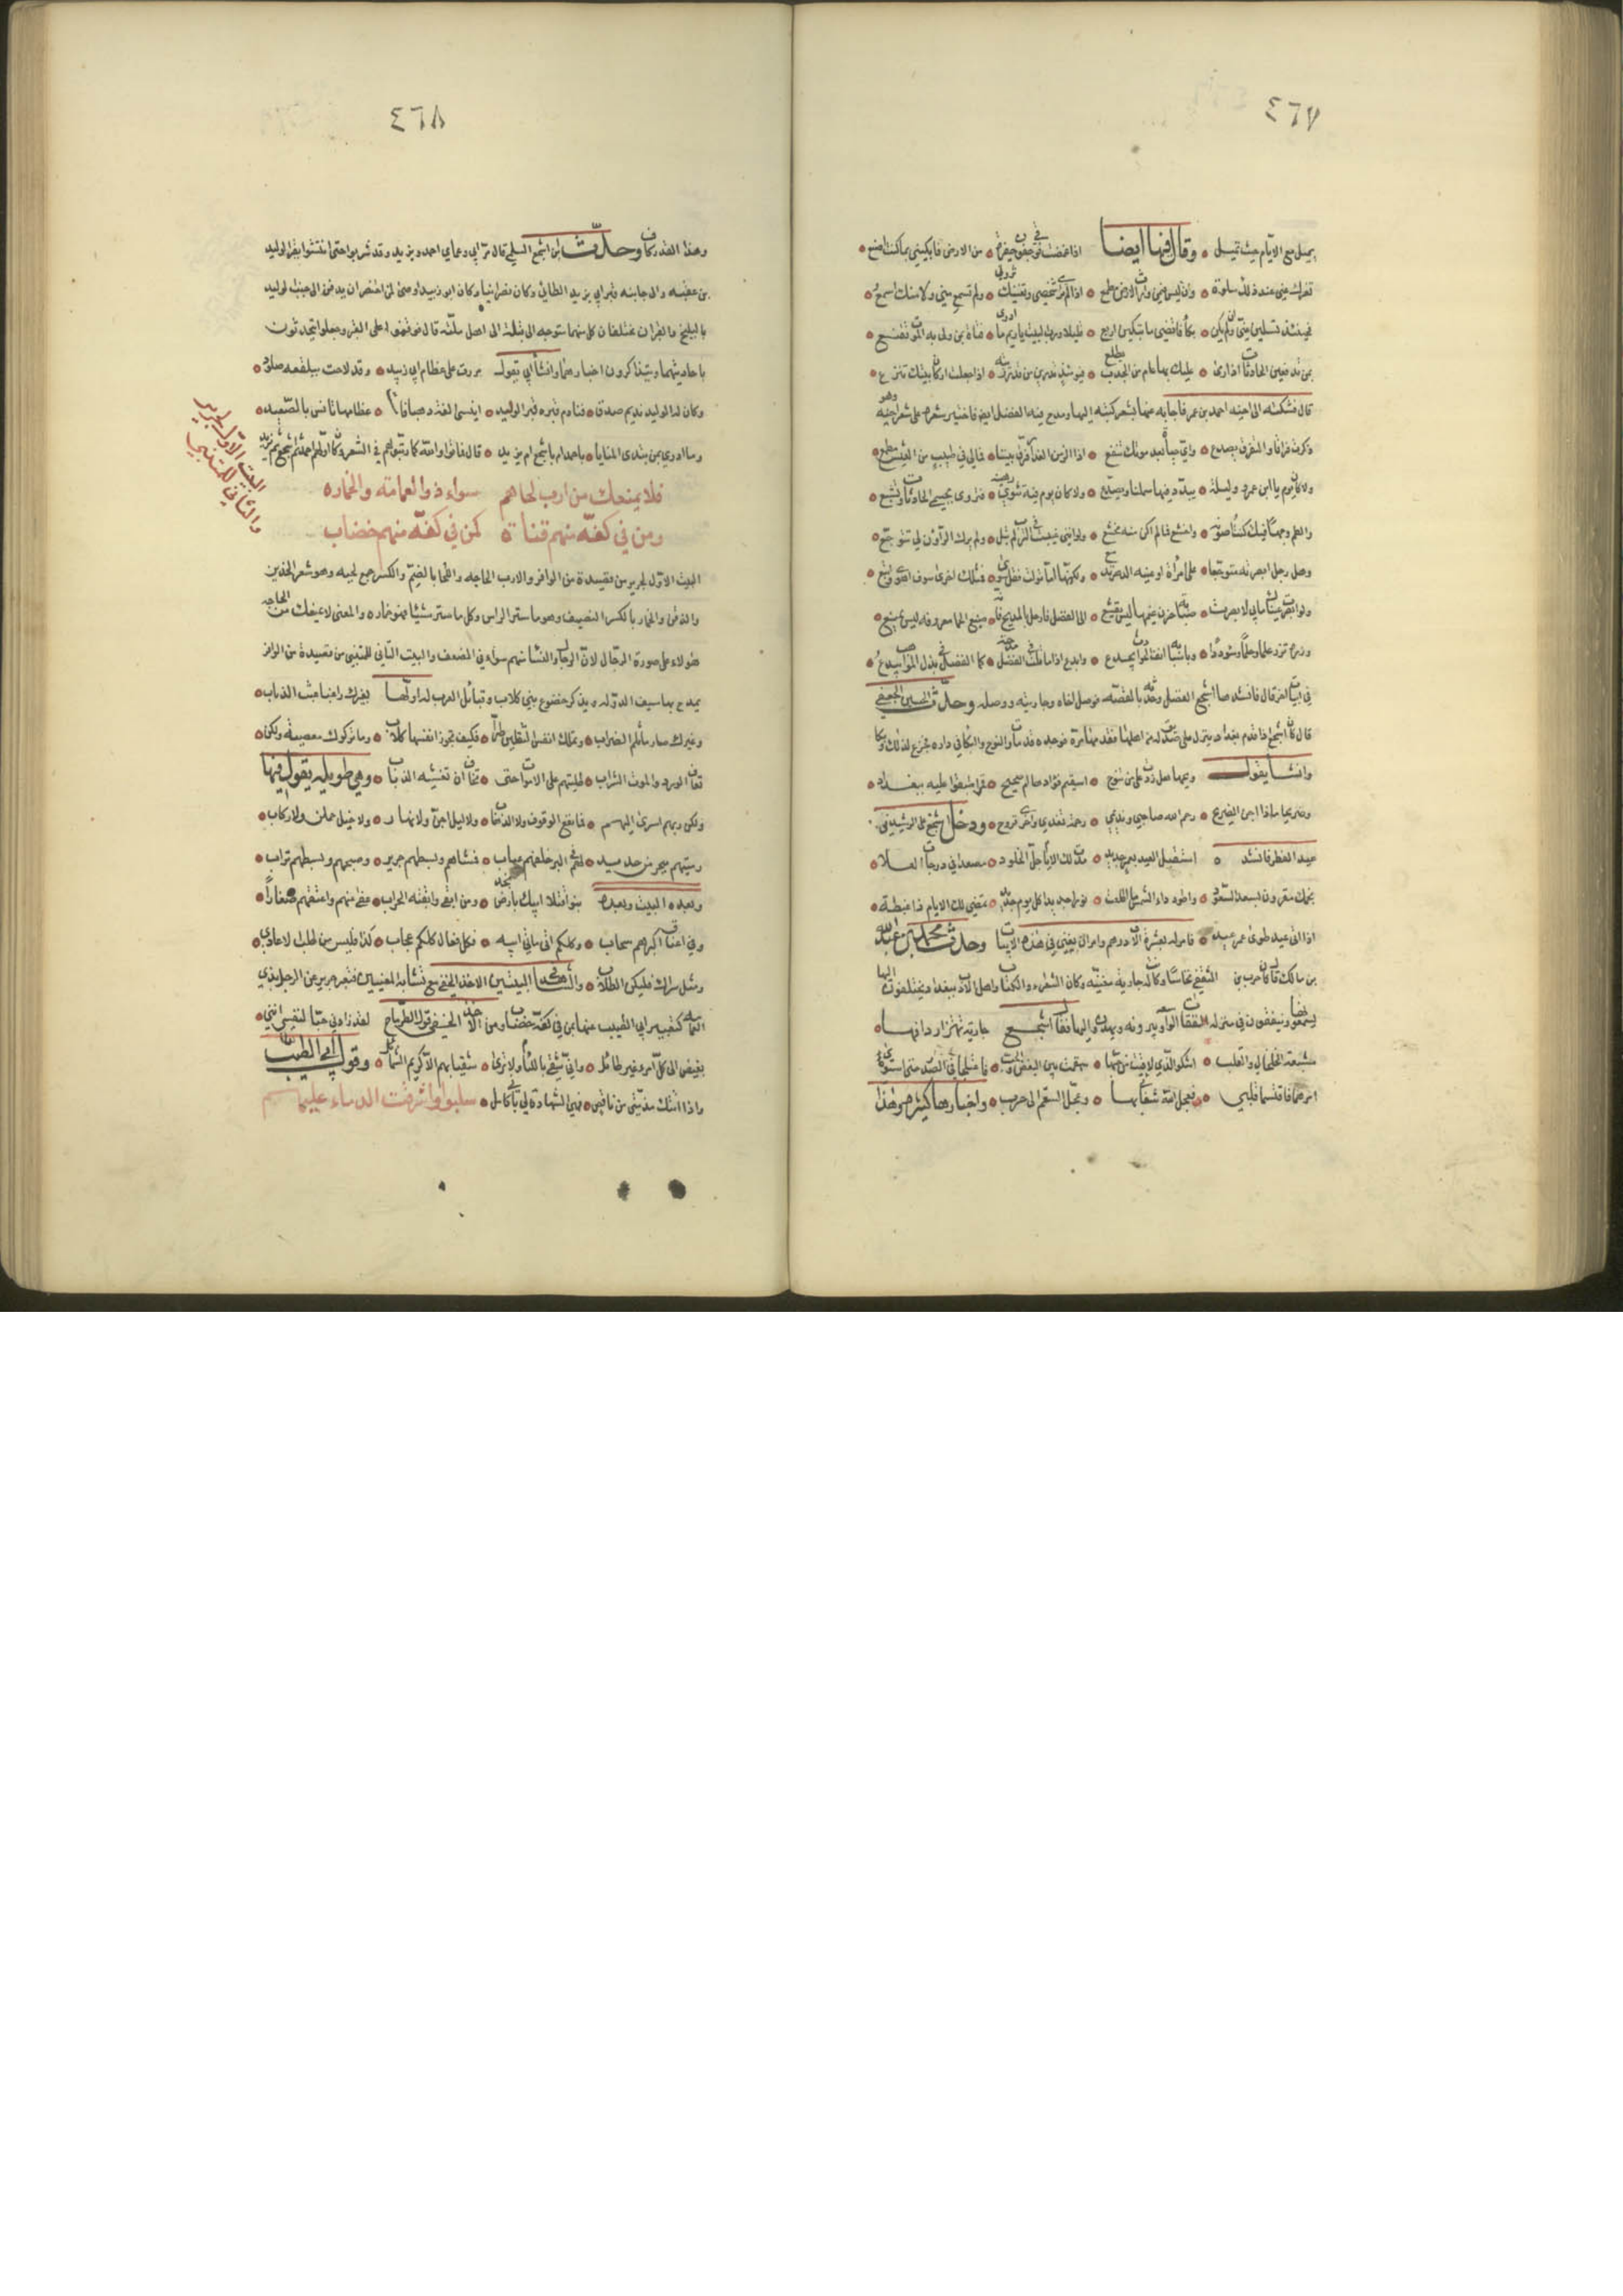 ٤٦٧
يميل مع الايام حيث تميل • وقال فيها ايضا اذا غمضت فوقي جفون حفيرة • من الارض فابكيني بما كنت اصنع •
تعزك عني عند ذلك سلوة • وان ليس فيمن وارت الارض مطمع • اذا لم تري شخصي وتغنيك ثروتي • ولم تسمعي مني ولا منك اسمع •
فحينئذ تسلين عني وان يكن • بكاء فاقصى ما تبكين اربع • قليلا ورب البيت يا ريم ما ارى • فتاة بمن ولى به الموت تقنع •
بمن تدفعين الحادثات اذا رمى • عليك بها عام من الجدب يطلع • فيومئذ تدرين من قد رزيته • اذا جعلت اركان بيتك تنزع •
قال فشكته الى اخيه احمد بن عمر فاجابه عنها بشعر كتبه اليها ومدح فيه الفضل ايضا فاختير شعره على شعر اخيه وهو
ذكرت فراقا والتفرق يصدع • واي حياة بعد موتك تنفع • اذا الزمن الغدار فرق بيننا • فمالي في طيب من العيش مطمع •
ولا كان يوم يا ابن عمرو وليلة • يبدد فيها شملنا ويصدع • ولا كان يوم فيه تثوي رهينة • فتروى بجسمي الحادثات وتشبع •
والطم وجها فيك كنت اصونه • واخشع فيما لم اكن منه اخشع • ولو انني غيبت في الترب لم تبل • ولم يرك الراؤن لي تتوجع •
وهل رجل ابصرته متوجعا • على امرأة او عينه الدهر تدمع • ولكن اذا ولت يقول لها اذهبي • فمثلك اخرى سوف اهوى واتبع •
ولو ابصرت عيناك ما بي لابصرت • صبابة حزن غيمها ليس يقشع • الى الفضل فارحل بالمديح فانه • منيع الحما معروفه ليس يمنع •
وزره تزر علما وحلما وسوددا • وباسا به انف الحوادث يجدع • وابدع اذا ما قلت في الفضل مدحة • كما الفضل في بذل المواهب يبدع •
في ابيات اخر قال فانشد اشجع الفضل وحدثه بالقصة فوصل اخاه وجاريته ووصله وحدث الحسين الجعفي
قال كان اشجع اذا قدم بغداد ينزل على صديق له من اهلها فقدمها مرة فوجده قد مات والنوح والبكاء في داره فجزع لذلك وبكا
وانشا يقول ويحها هل درت على من تنوح • اسقيم فؤادها ام صحيح • قمر اطبقوا عليه ببغداد •
ضريحا ماذا اجن الضريح • رحم الله صاحبي ونديمي • رحمة تغتدي واخرى تروح • ودخل اشجع على الرشيد في
عيد الفطر فانشد • استقبل العيد بعمر جديد • مدت لك الايام حبل الخلود • مصعدا في درجات العلا •
نجمك مقرون بسعد السعود • واطو رداء الشمس ما اطلعت • نورا جديدا كل يوم جديد • تمضي لك الايام ذا غبطة •
اذا اتى عيد طوى عمر عيد • فامر له بعشرة الاف درهم وامر ان يغنى في هذه الابيات وحدث محمد بن عبد الله
بن مالك قال كان حرب بن الثقفي نخاسا وكانت له جارية مغنيه وكان الشعراء والكتاب واهل الادب ببغداد يختلفون اليها
يسمعونها وينفقون في منزله النفقات الواسعة ويبرونه ويهدون اليها فقال اشجع جارية تهتز اردافها •
مشبعة الخلخال والقلب • اشكو الذي لاقيت من حبها • وبغض مولاها الى الرب • فاختلجا في الصدر حتى استوى
امرهما فاقتسما قلبي • فعجل الله شفائي بها • وعجل السقم الى حرب • واخبار اشجع كثيرة وفي هذا
٤٦٨
وهذا القدر كاف وحدث ابن اشجع السلمي قال مر ابي وعماي احمد ويزيد وقد شربوا حتى انتشوا بقبر الوليد
بن عقبه والى جانبه قبر ابي زبيد الطائي وكان نصرانيا وكان ابو زبيد اوصى لما احتضر ان يدفن الى جنب الوليد
بالبليخ والقبران مختلفان كل منهما متوجه الى قبلة الى اهل ملته قال فوقفوا على القبر وجعلوا يتحدثون
باحاديثهما ويتذاكرون اخبارهما وانشا ابي يقول مررت على عظام ابي زبيد • وقد لاحت ببلقعة صلود •
وكان له الوليد نديم صدق • فنادم قبره قبر الوليد • انيسا الفة ذهبا فاما • عظامهما تانس بالصعيد •
وما ادري بمن تبدى المنايا • باحمد ام باشجع ام يزيد • قال فماتوا والله كما رتبهم في الشعر وكان اولهم احمد ثم اشجع ثم يزيد
فلا يمنعك من ارب لحاهم سواء ذو العمامة والخماره
ومن في كفه منهم قناة كمن في كفه منهم خضاب
البيت الاول لجرير والثاني للمتنبي
البيت الاول لجرير من قصيدة من الوافر والارب الحاجه واللحا بالضم والكسر جمع لحيه وهو شعر الخدين
والذقن والخمار بالكسر النصيف وهو ما ستر الراس وكل ما ستر شيئا فهو خماره والمعنى لا يمنعك من الحاجه
هؤلاء على صورة الرجال لان الرجال والنساء منهم سواء في الضعف والبيت الثاني للمتنبي من قصيدة من الوافر
يمدح بها سيف الدوله ويذكر خضوع بني كلاب وقبائل العرب له اولها بغيرك راعيا عبث الذئاب •
وغيرك صارما ثلم الضراب • وتملك انفس الثقلين طرا • فكيف تحوز انفسها كلاب • وما تركوك معصية ولكن •
تعاف الورد والموت الشراب • طلبتهم على الامواه حتى • تخاف ان تفتشه الذئاب • وهي طويله يقول فيها
ولكن ربهم اسرى اليهم • فما نفع الوقوف ولا الذهاب • ولا ليل اجن ولا نهار • ولا خيل حملن ولا ركاب •
رميتهم ببحر من حديد • له في البر خلفهم عباب • فمساهم وبسطهم حرير • وصبحهم وبسطهم تراب •
وبعده البيت وبعده بنو قتلا ابيك بارض نجد • ومن ابقى وابقته الحراب • عفا عنهم واعتقهم صغارا •
وفي اعناق اكثرهم سحاب • وكلكم اتى ماتى ابيه • فكل فعال كلكم عجاب • كذا فليسر من طلب الاعادي •
ومثل سراك فليكن الطلاب • والشاهد في البيتين الاخذ الخفي مع تشابه المعنيين فتعبير جرير عن الرجل بذي
العمامه كتعبير ابي الطيب عنه بمن في كفه خضاب ومن الاخذ الخفي قول الطرماح لقد زادني حبا لنفسي انني •
بغيض الى كل امرء غير طائل • واني شقي باللئام ولا ترى • شقيا بهم الا كريم الشمائل • وقول ابي الطيب
واذا اتتك مذمتي من ناقص • فهي الشهادة لي باني كامل • سلبوا واشرقت الدماء عليهم